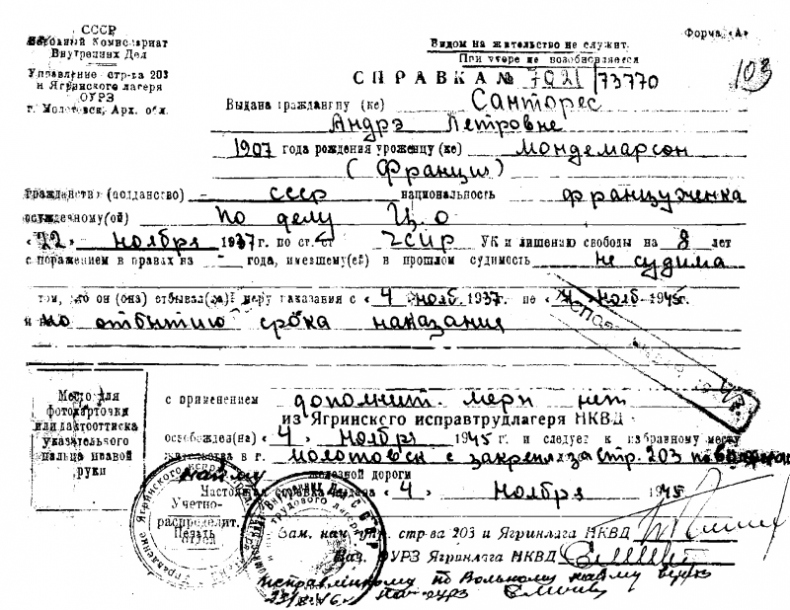 СССР
Народный Комиссариат
Внутренних Дел
Управление стр-ва 203
и Ягринского лагеря
ОУРЗ
г. Молотовск, Арх. обл.
Форма „А“
Видом на жительство не служит.
При утере не возобновляется
103
СПРАВКА № 7021/73770
Выдана гражданину (ке) Санторес
Андрэ Петровне
1907 года рождения уроженцу (ке) Мондемарсон
(Франция)
Гражданство (подданство) - ссср национальность француженка
осужденному(ой) по делу Ц.О
«22» ноября 1937 г. по ст. ст ЧСИР УК и лишению свободы на 8 лет
с поражением в правах на - года, имевшему(ей) в прошлом судимость не судима
том, что он (она) отбывал(ла) меру наказания с «4 нояб. 1937. по «4 нояб 1945г.
и по отбытию срока наказания
Место для
фотокарточки
или дактооттиска
указательного
пальца правой
руки
с применением дополнит. мерн нет
из Ягринского исправтрудлагеря НКВД
освобожден(на) «4» ноября 1945 г. и следует к избранному месту
жительства в г. Молотовск с закреплз за стр. 203 по
найму железной дороги
Настоящая справка выдана «4» Ноября 1945
Учетно-
распределит.
Печать
Зам. нач. упр. стр-ва 203 и Ягринлага НКВД
Нач. ОУРЗ Ягринлага НКВД
исправленному по вольному найму верить